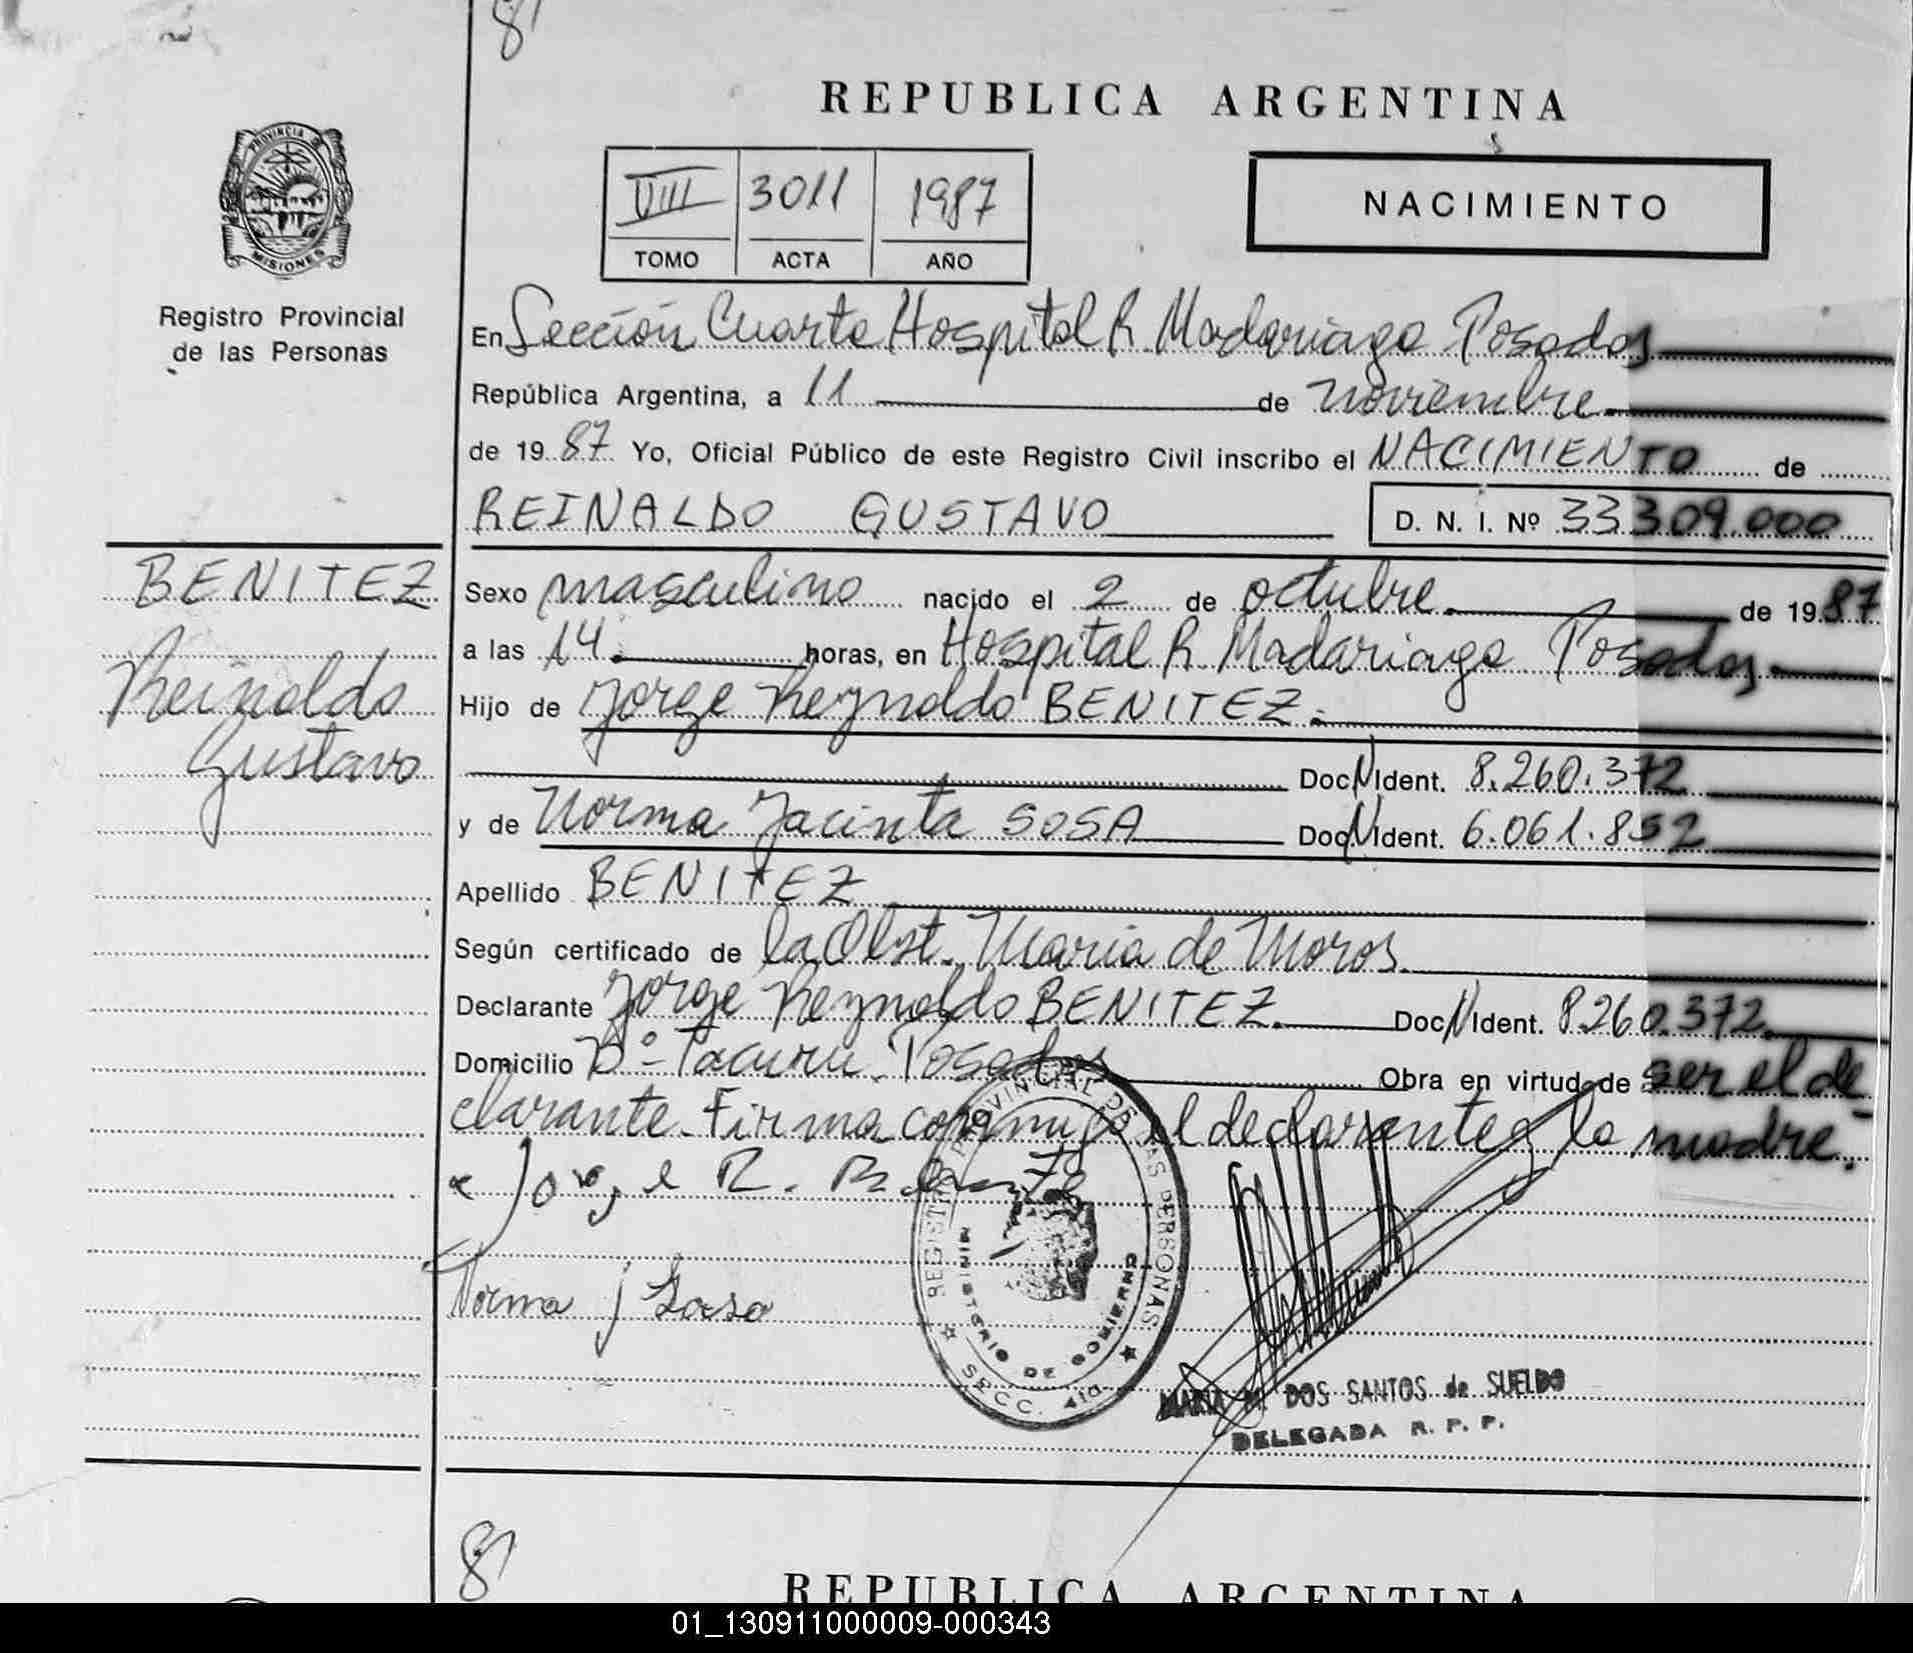 8
REPUBLICA ARGENTINA
PROVINCIA D MISIONES
VIII 3011 1987
TOMO ACTA AÑO
NACIMIENTO
Registro Provincial
de las Personas
En Sección Cuarta Hospital R. Madariaga Posadas
República Argentina, a 11 de noviembre
de 1987 Yo, Oficial Público de este Registro Civil inscribo el NACIMIENTO de
REINALDO GUSTAVO D. N. I. Nº 33.309.000
BENITEZ
Reinaldo
Gustavo
Sexo masculino nacido el 2 de octubre de 1987
a las 14 horas, en Hospital R Madariaga Posadas
Hijo de Jorge Reynaldo BENITEZ
Doc N Ident. 8.260.372
y de Norma Jacinta SOSA Doc N Ident. 6.061.852
Apellido BENITEZ
Según certificado de la Obst. Maria de Moros
Declarante Jorge Reynaldo BENITEZ Doc N Ident. 8.260.372
Domicilio Bº Tacuru Posadas Obra en virtud de ser el de
clarante. Firma conmigo el declarante y la madre.
Jorge R. Benitez
Norma J Sosa
REGISTRO PROVINCIAL DE LAS PERSONAS
MINISTERIO DE GOBIERNO
SECC. 4ta
MARIA M. DOS SANTOS de SUELDO
DELEGADA R. P. P.
8
REPUBLICA ARGENTINA
01_130911000009-000343